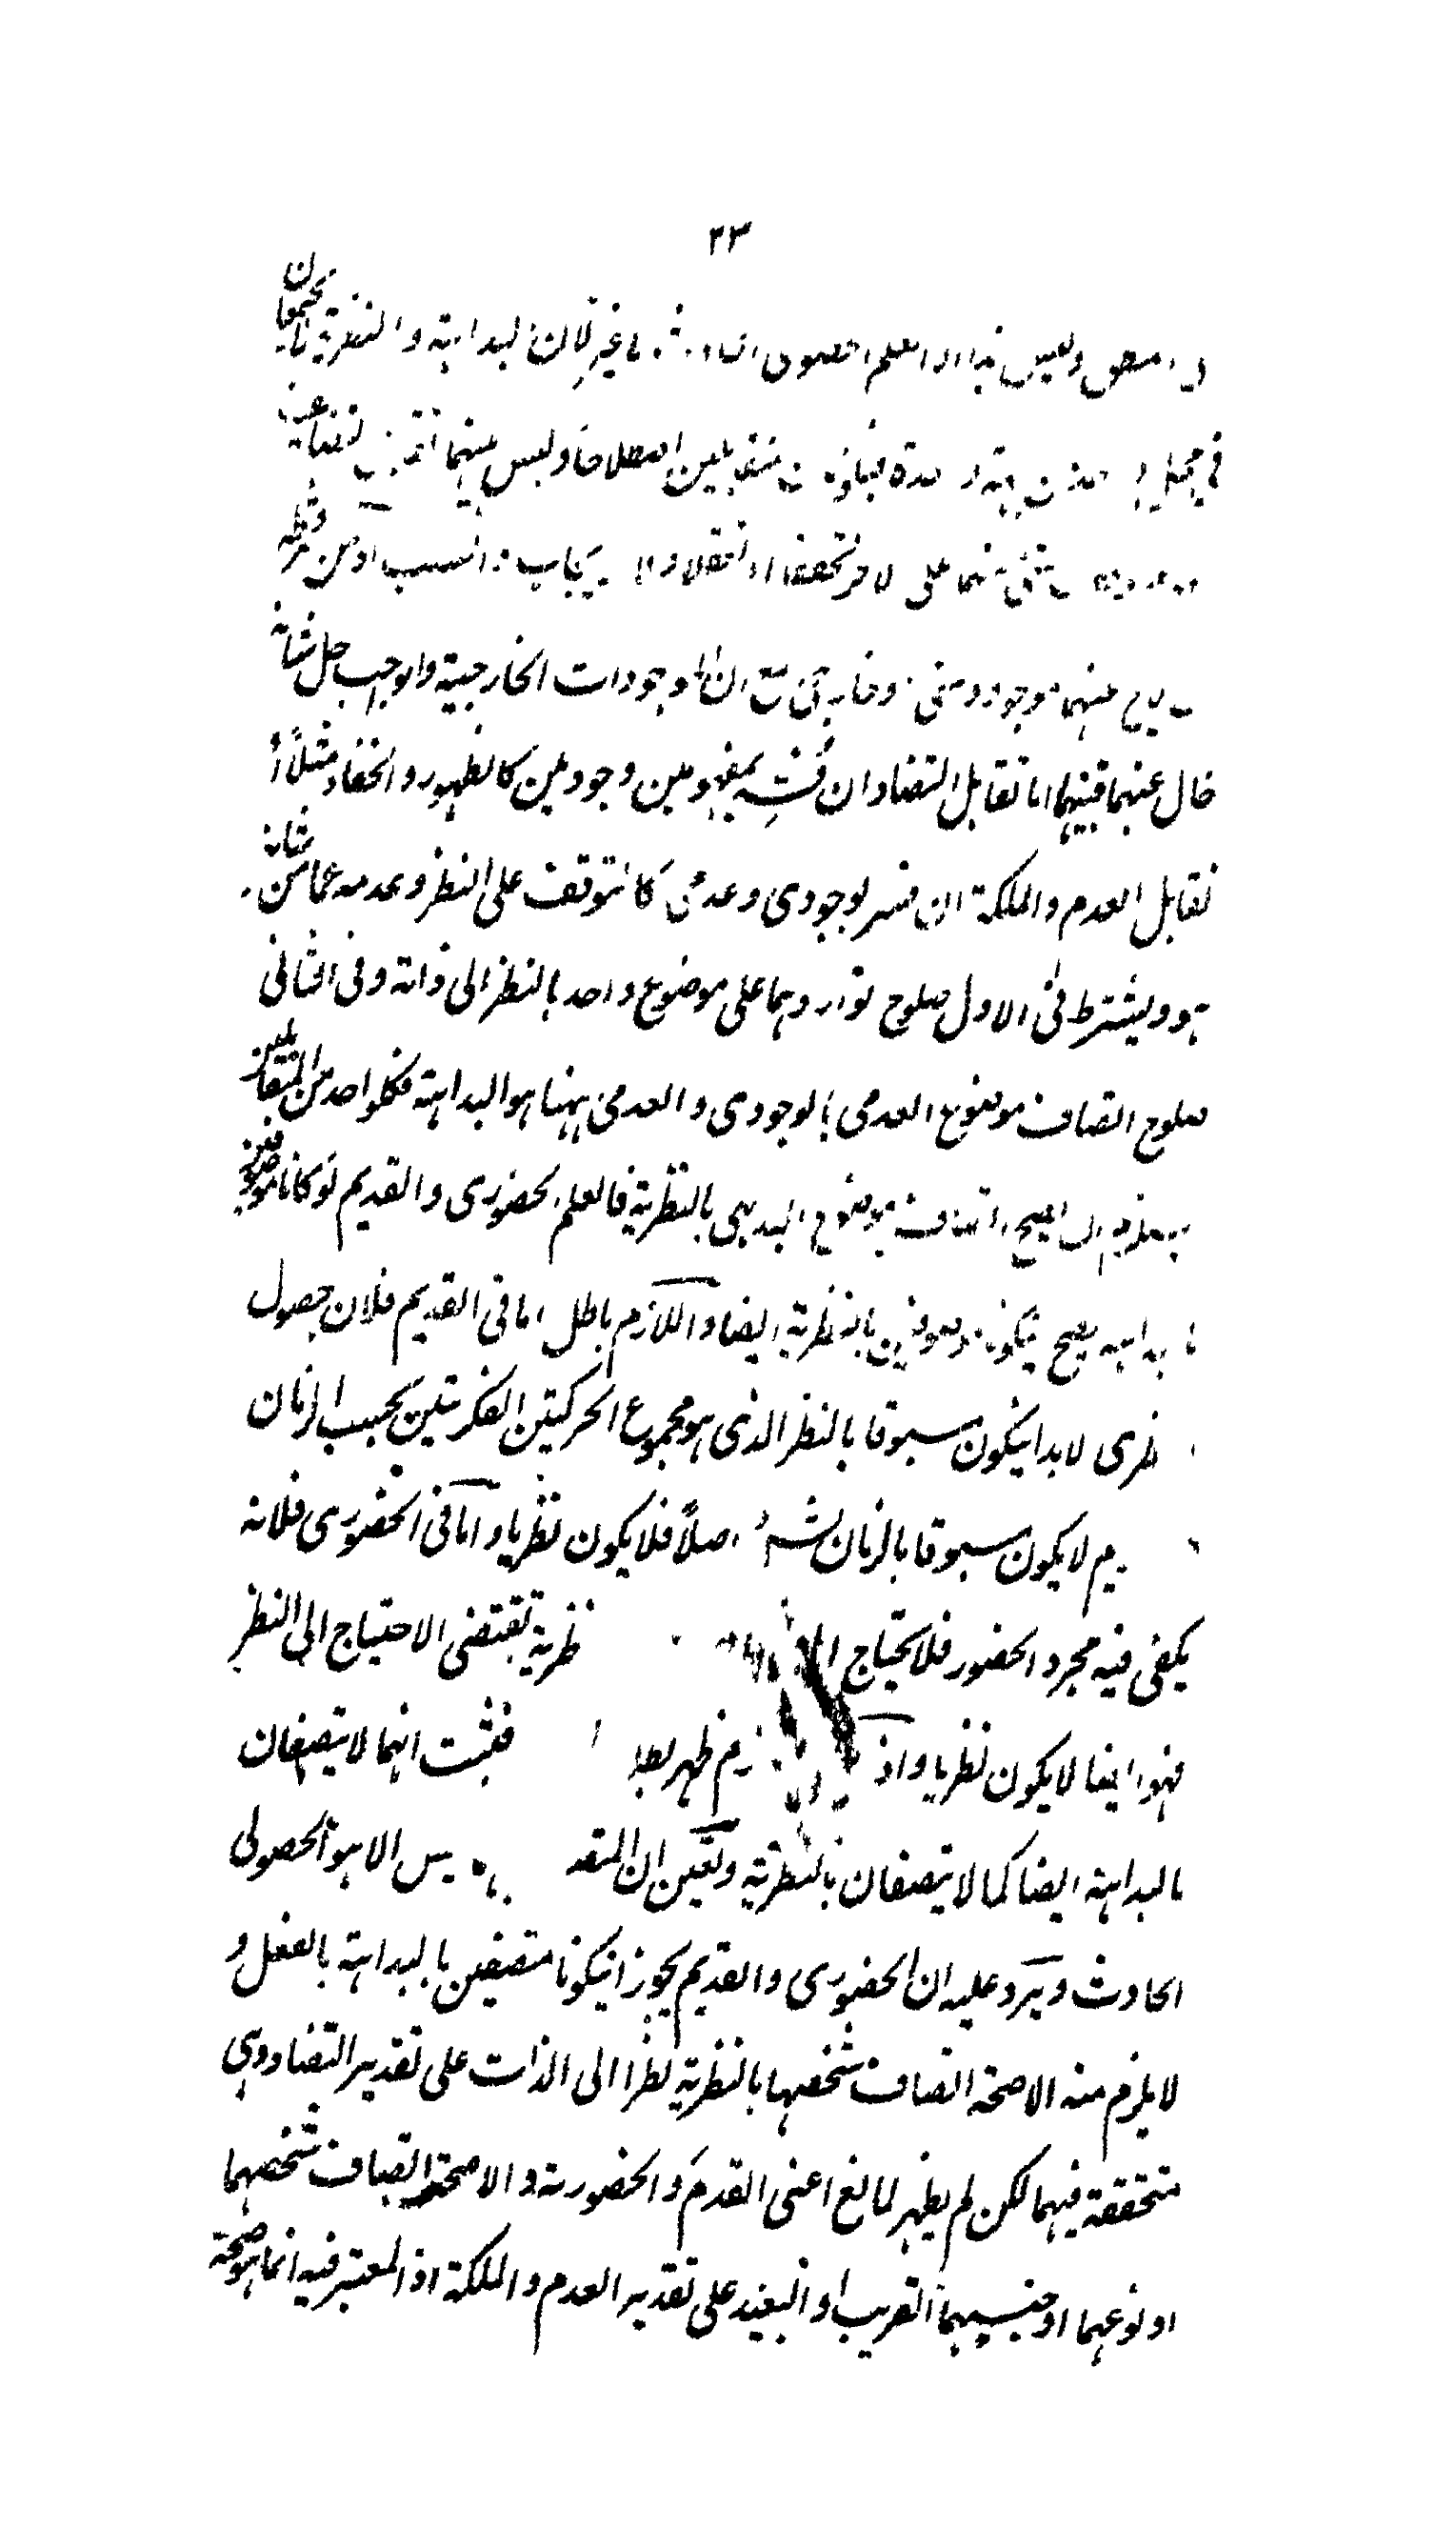 ٢٣
وليس هذا الا العلم الحصولى الحادث لا غير لان البداهة والنظرية لا يجتمعان
فى محل من جهة واحدة فيكونان متقابلين اصطلاحا وليس بينهما تقابل التضايف
على الاخر تحققا او تعقلا ولا الايجاب والسلب اذ من شرطه
منهما موجود ذهنى وخارجى مع ان الموجودات الخارجية والواجب جل شانه
خال عنهما فبينهما اما تقابل التضاد ان فسر بمفهومين وجوديين كالظهور والخفاء مثلا او
تقابل العدم والملكة ان فسر بوجودى وعدمى كالتوقف على النظر وعدمه عما من شانه
هو ويشترط فى الاول صلوح تواردهما على موضوع واحد بالنظر الى ذاته وفى الثانى
صلوح اتصاف موضوع العدمى بالوجودى والعدمى ههنا هو البداهة فكلواحد من المتقابلين
اتصاف موضوع البديهى بالنظرية فالعلم الحضورى والقديم لو كانا موصوفين
بالبداهة يصح ان يكونا موصوفين بالنظرية ايضا واللازم باطل اما فى القديم فلان حصول
النظرى لا بد ان يكون مسبوقا بالنظر الذى هو مجموع الحركتين الفكريتين بحسب الزمان
لا يكون مسبوقا بالزمان لشئ اصلا فلا يكون نظريا واما فى الحضورى فلانه
يكفى فيه مجرد الحضور فلا يحتاج نظرية تقتضى الاحتياج الى النظر
فهو ايضا لا يكون نظريا واذ ظهر فثبت انهما لا يتصفان
بالبداهة ايضا كما لا يتصفان بالنظرية وتعين ان ليس الا هو الحصولى
الحادث ويرد عليه ان الحضورى والقديم يجوز ان يكونا متصفين بالبداهة بالفعل و
لا يلزم منه الا صحة اتصاف شخصها بالنظرية نظرا الى الذات على تقدير التضاد وهى
متحققة فيهما لكن لم يظهر لمانع اعنى القدم والحضورية والا صحة اتصاف شخصهما
او نوعهما او جنسيهما القريب او البعيد على تقدير العدم والملكة اذ المعتبر فيه انما هو صحة